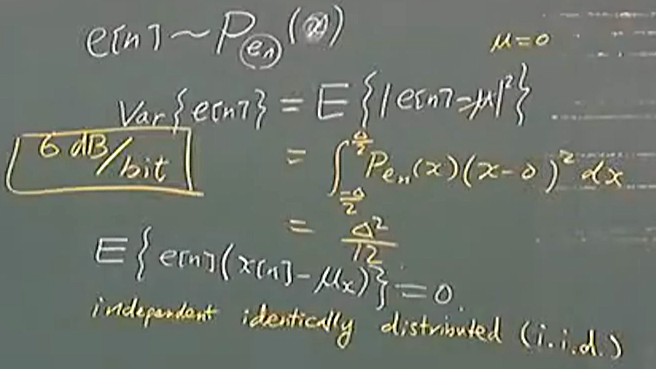 e[n] ~ P_{e_n}(x)
μ=0
Var{e[n]} = E{|e[n]-μ|²}
6 dB/bit
= ∫_{-Δ/2}^{Δ/2} P_{e_n}(x)(x-0)² dx
= Δ²/12
E{e[n](x[n]-μ_x)}=0
independent identically distributed (i.i.d.)